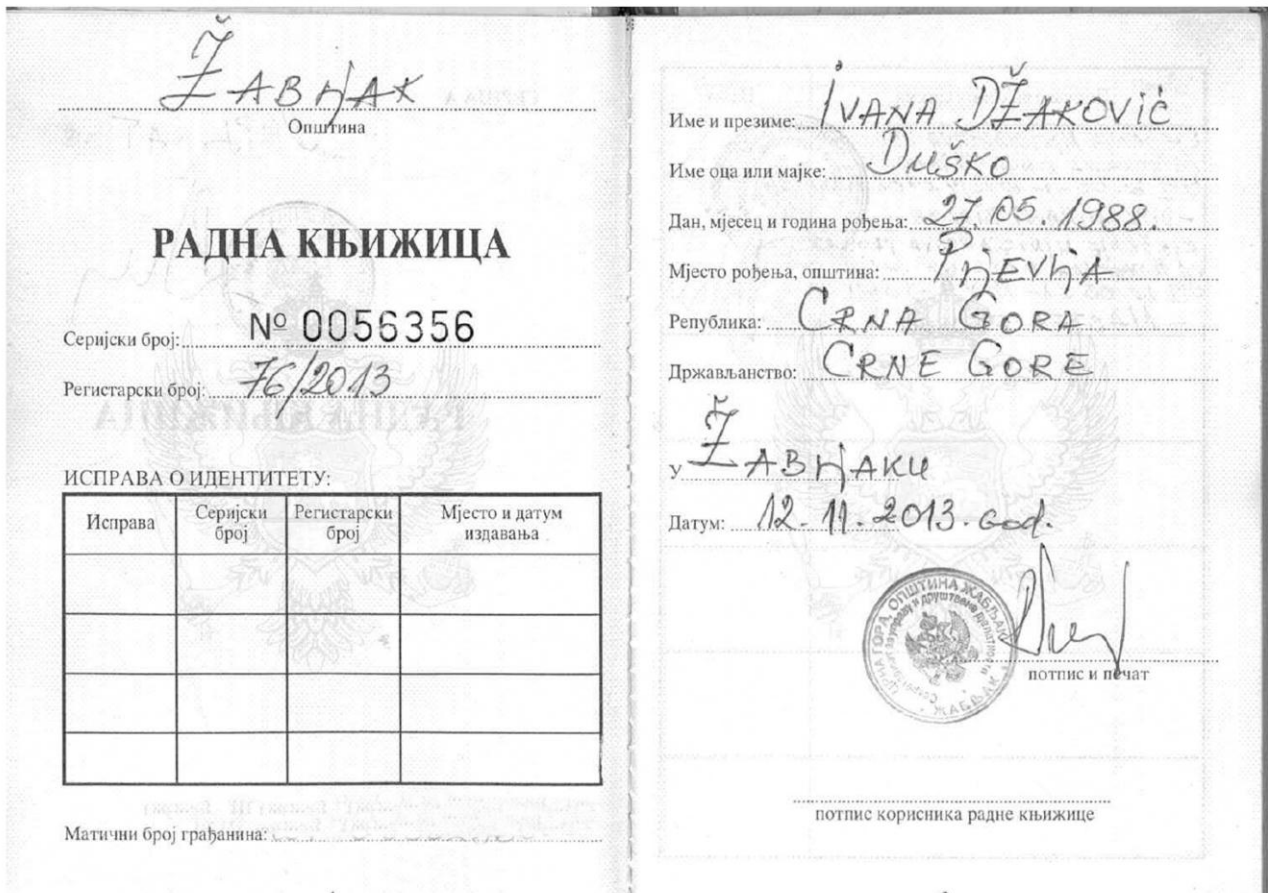 Žabljak
Општина
РАДНА КЊИЖИЦА
Серијски број: № 0056356
Регистарски број: 76/2013
ИСПРАВА О ИДЕНТИТЕТУ:
Исправа
Серијски број
Регистарски број
Мјесто и датум издавања
Матични број грађанина:
Име и презиме: IVANA DŽAKOVIĆ
Име оца или мајке: DUŠKO
Дан, мјесец и година рођења: 27.05.1988.
Мјесто рођења, општина: PљEVљA
Република: CRNA GORA
Држављанство: CRNE GORE
У ŽABљAKU
Датум: 12.11.2013. god.
ЦРНА ГОРА, ОПШТИНА ЖАБЉАК
ЖАБЉАК
потпис и печат
потпис корисника радне књижице